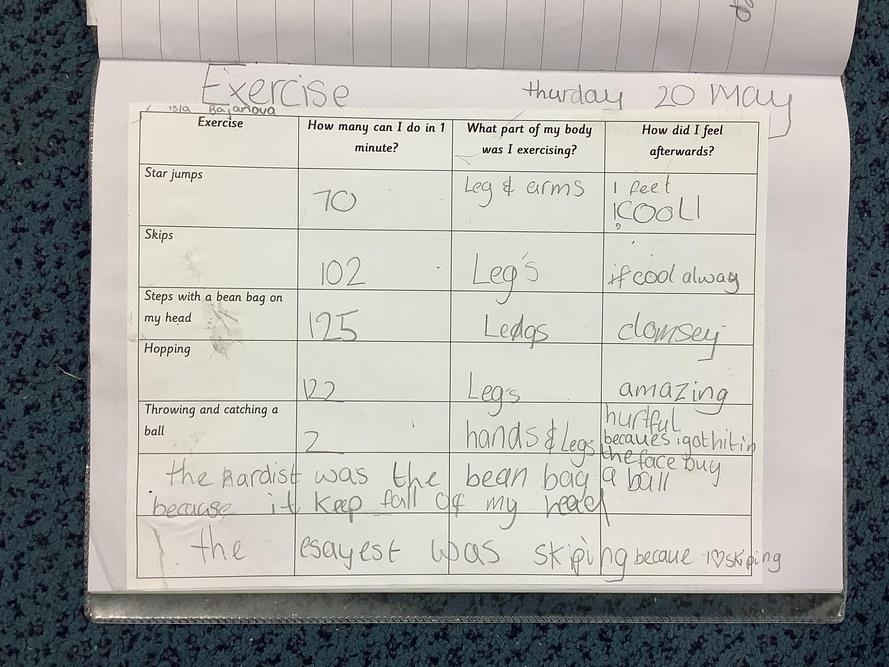 Exercise thurday 20 May
isla Bajanova
Exercise How many can I do in 1 minute? What part of my body was I exercising? How did I feel afterwards?
Star jumps 70 Leg & arms I feet COOL!
Skips 102 Leg's if cool alway
Steps with a bean bag on my head 125 Ledgs clomsey
Hopping 122 Leg's amazing
Throwing and catching a ball 2 hands & Legs hurtful becaues i got hit in the face buy a ball
the hardist was the bean bag
because it keep fall of my head
the esayest was skiping becaue I♡skiping